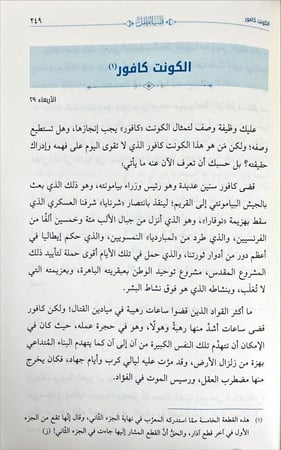 الكونت كافور
قلب الطفل
٢٤٩
الكونت كافور (١)
الأربعاء ٢٩
عليك وظيفة وصف لتمثال الكونت «كافور» يجب إنجازها، وهل تستطيع
وصفه؛ ولكن مَن هو هذا الكونت كافور الذي لا تقوى اليوم على فهمه وإدراك
حقيقته؟ بل حسبك أن تعرف الآن عنه ما يأتي:
قضى كافور سنين عديدة وهو رئيس وزراء بيامونته، وهو ذلك الذي بعث
بالجيش البيامونتي إلى القرم؛ لينقذ بانتصار «شرنايا» شرفنا العسكري الذي
سقط بهزيمة «نوفارا»، وهو الذي أنزل من جبال الألب مئة وخمسين ألفًا من
الفرنسيين، والذي طرد من «لمبارديا» النمسويين، والذي حكم إيطاليا في
أعظم دور من أدوار ثورتنا، والذي حمل في تلك الأيام أقوى حملة لتأييد ذلك
المشروع المقدس، مشروع توحيد الوطن بعبقريته الباهرة، وبعزيمته التي
لا تُغلَب، وبنشاطه الذي هو فوق نشاط البشر.
ما أكثر القواد الذين قضوا ساعات رهيبة في ميادين القتال؛ ولكن كافور
قضى ساعات أشدَّ منها رهبةً وهولًا، وهو في حجرة عمله، حيث كان في
الإمكان أن تتهدَّم تلك النفس الكبيرة من آن إلى آن كما يتهدم البناء المتداعي
بهزة من زلزال الأرض، وقد مرَّت عليه ليالي كرب وأيام جهاد، فكان يخرج
منها مضطرب العقل، ورسيس الموت في الفؤاد.
(١) هذه القطعة الخامسة ممَّا استدركه المعرّب في نهاية الجزء الثاني، وقال إنَّها تقع من الجزء
الأول في آخر قطع آذار، والحقُّ أنَّ القطع المشار إليها جاءت في الجزء الثاني! (ز)